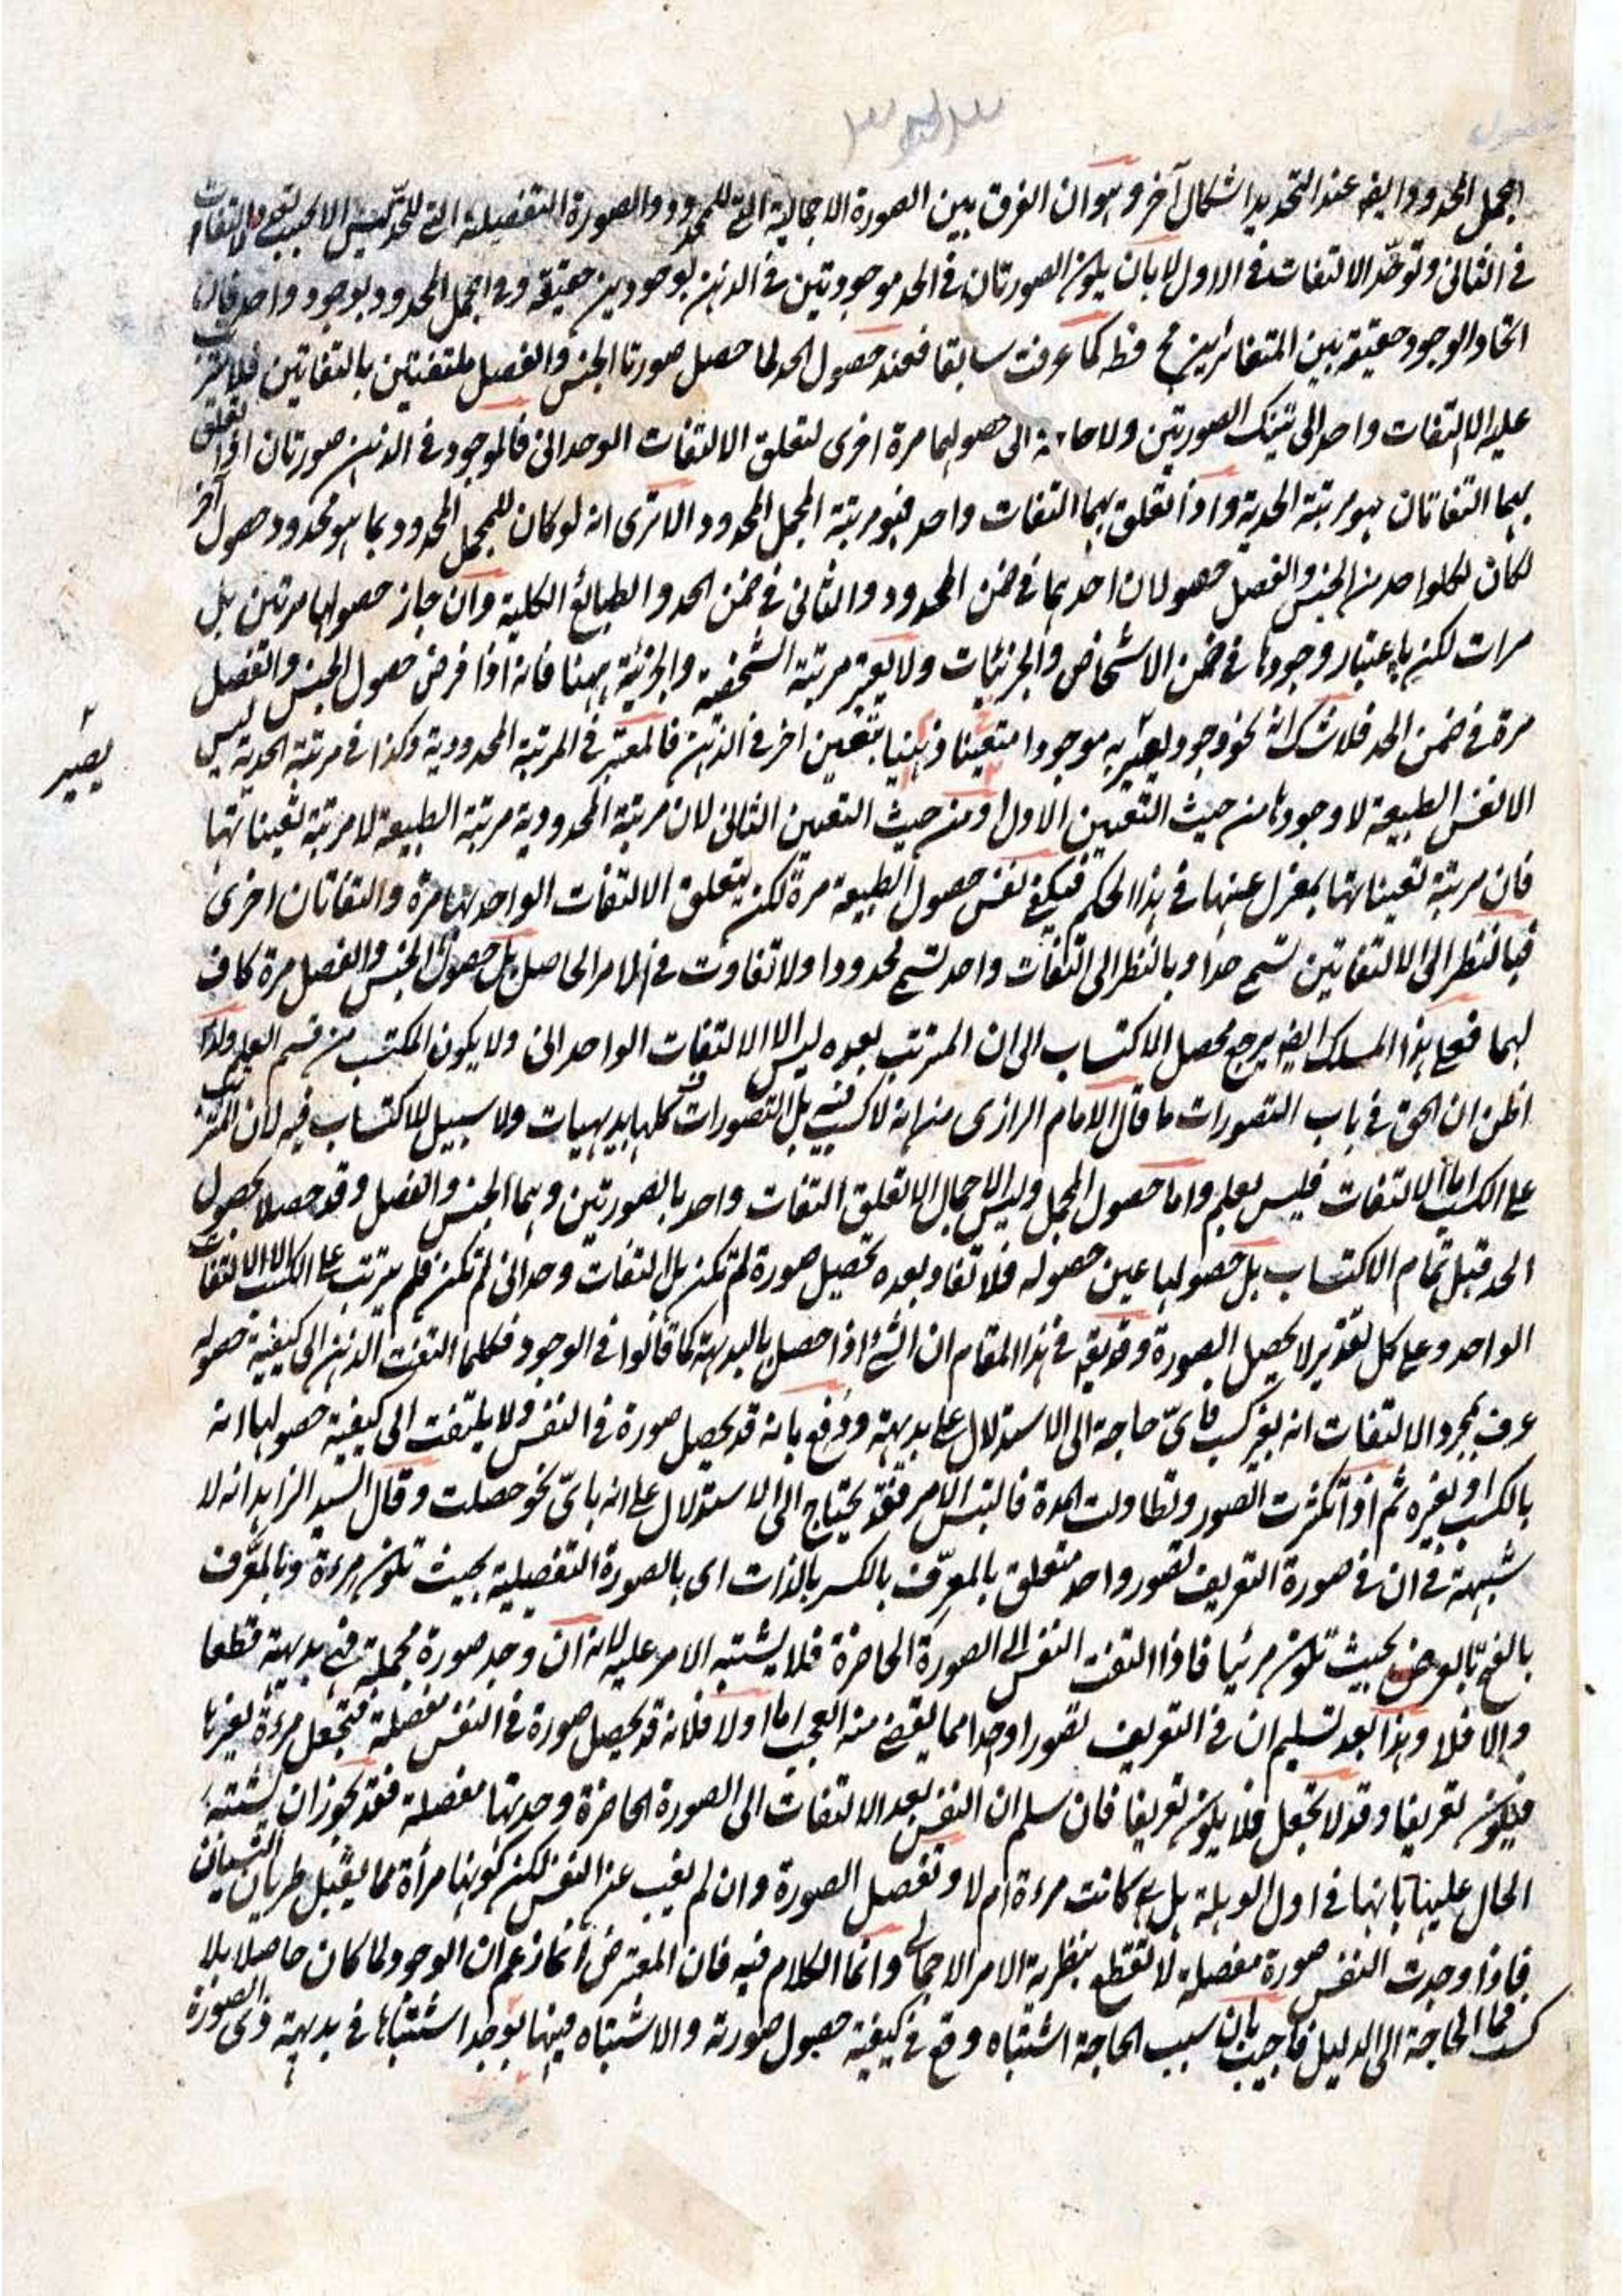 المجمل المحدود وايضا عند التحديد اشكال آخر وهو ان الفرق بين الصورة الاجمالية التي للمحدود والصورة التفصيلية التي للحد ليس الا بحسب تعدد الالتفات
في الثاني وتوحد الالتفات في الاول لا بان يكون الصورتان في الحد موجودتين في الذهن بوجودين حقيقة وفي المجمل المحدود بوجود واحد فان
اتحاد الوجود حقيقة بين المتغائرين مح قطعا كما عرفت سابقا فعند حصول الحد لما حصل صورتا الجنس والفصل ملتفتين بالتفاتين فلا يترتب
عليه الا التفات واحد الى تينك الصورتين ولا حاجة الى حصولهما مرة اخرى لتعلق الالتفات الوحداني فالموجود في الذهن صورتان اذا تعلق
بهما التفاتان هو مرتبة الحدية واذا تعلق بهما التفات واحد فهو مرتبة المجمل المحدود الا ترى انه لو كان للمجمل المحدود بما هو محدود حصول آخر
لكان لكل واحد من الجنس والفصل حصولان احدهما في ضمن المحدود والثاني في ضمن الحد والطبائع الكلية وان جاز حصولها مرتين بل
مرات لكن باعتبار وجودها في ضمن الاشخاص والجزئيات ولا يعتبر مرتبة الشخصية والجزئية ههنا فانه اذا فرض حصول الجنس والفصل
مرة في ضمن الحد فلا شك انه نحو وجود يصير به موجودا متعينا ذهنيا بتعين اخر في الذهن فالمعتبر في المرتبة المحدودية وكذا في مرتبة الحدية ليس
يصير
الا نفس الطبيعة لا وجودها من حيث التعين الاول او من حيث التعين الثاني لان مرتبة المحدودية مرتبة الطبيعة لا مرتبة تعيناتها
فان مرتبة تعيناتها بمعزل عنها في هذا الحكم فيكفي نفس حصول الطبيعة مرة لكن يتعلق الالتفات الواحد بها مرة والتفاتان اخرى
فبالنظر الى الالتفاتين تسمى حدا وبالنظر الى التفات واحد تسمى محدودا ولا تفاوت في الامر الحاصل بل حصول الجنس والفصل مرة كاف
لهما فعلى هذا المسلك ايضا يرجع محصل الاكتساب الى ان المترتب بعده ليس الا الالتفات الواحداني ولا يكون المكتسب من قسم العلم ولذا
اظن ان الحق في باب التصورات ما قال الامام الرازي من انه لا كسب فيه بل التصورات كلها بديهيات ولا سبيل للاكتساب فيه لان المترتب
على الكسب اما الالتفات فليس بعلم واما حصول المجمل وليس الاجمال الا تعلق التفات واحد بالصورتين وهما الجنس والفصل وقد حصلا بحصول
الحد قبل تمام الاكتساب بل حصولها عين حصوله فلا تفاوت بعده تحصيل صورة لم تكن بل التفات وحداني لم تكن فلم يترتب على الكسب الا الالتفات
الواحد وعلى كل تقدير لا يحصل الصورة وقد يقع في هذا المقام ان الشئ اذا حصل بالبديهة كما قالوا في الوجود فكلما التفت الذهن الى كيفية حصوله
عرف بمجرد الالتفات انه بغير كسب فاي حاجة الى الاستدلال على بديهيته ودفع بانه قد يحصل صورة في النفس ولا يلتفت الى كيفية حصولها انه
بالكسب او بغيره ثم اذا تكثرت الصور وتطاولت المدة فالتبس الامر فقد يحتاج الى الاستدلال على انه باي نحو حصلت وقال السيد الزاهد انه لا
شبهة في ان في صورة التعريف تصور واحد متعلق بالمعرف بالكسر بالذات اي بالصورة التفصيلية بحيث تكون مرءة وبالمعرف
بالفتح بالعرض بحيث تكون مرئيا فاذا التفت النفس الى الصورة الحاضرة فلا يشتبه الامر عليه لانه ان وجد صورة مجملة فهي بديهية قطعا
والا فلا وهذا بعد تسليم ان في التعريف تصورا واحدا مما يقضى منه العجب اما اولا فلانه قد يحصل صورة في النفس مفصلة فتجعل مرءة لغيرها
فيكون تعريفا وقد لا تجعل فلا يكون تعريفا فان سلم ان النفس بعد الالتفات الى الصورة الحاضرة وجدتها مفصلة فقد يجوز ان يشتبه
الحال عليها بانها في اول الوهلة هل كانت مرءة ام لا وتفصل الصورة وان لم يغب عن النفس لكن كونها مرأة مما يقبل طريان النسيان
فاذا وجدت النفس صورة مفصلة لا تقطع بنظرية الامر الاجمالي وانما الكلام فيه فان المعترض انما زعم ان الوجود لما كان حاصلا بلا
كسب فما الحاجة الى الدليل فاجيب بان سبب الحاجة اشتباه وقع في كيفية حصول صورته والاشتباه فيها يوجد اشتباها في بديهية ذي الصورة